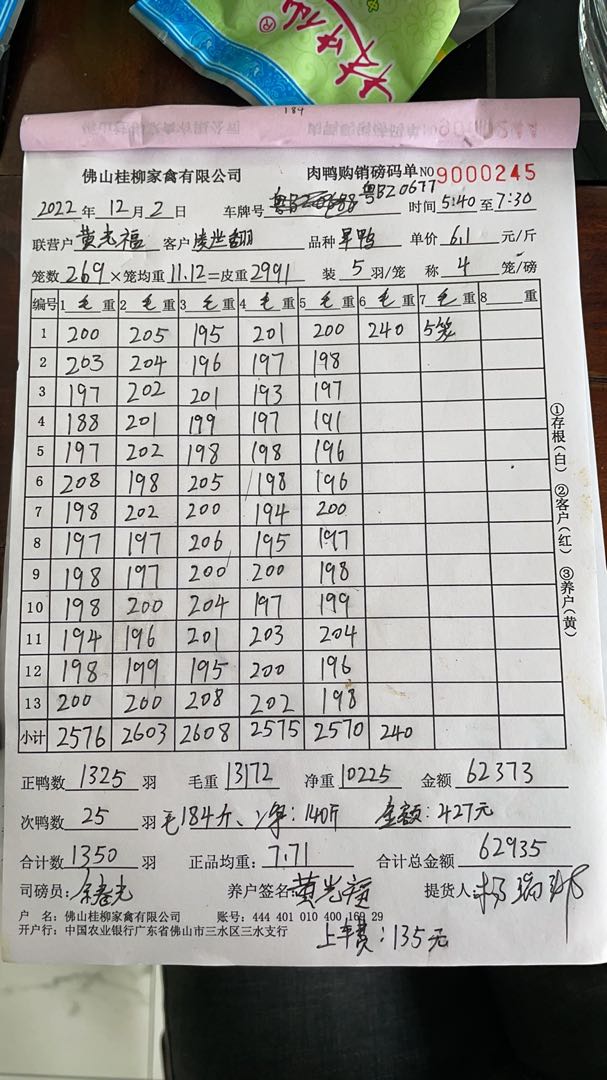 184
佛山桂柳家禽有限公司 肉鸭购销磅码单 NO 9000245
2022 年 12 月 2 日 车牌号 粤BZ0677 时间 5:40 至 7:30
联营户 黄光福 客户 品种 旱鸭 单价 6.1 元/斤
笼数 269 ×笼均重 11.12 =皮重 2991 装 5 羽/笼 称 4 笼/磅
编号 1 毛 重 2 毛 重 3 毛 重 4 毛 重 5 毛 重 6 毛 重 7 毛 重 8 重
1 200 205 195 201 200 240 5笼
2 203 204 196 197 198
3 197 202 201 193 197
4 188 201 199 197 191
5 197 202 198 198 196
6 208 198 205 198 196
7 198 202 200 194 200
8 197 197 206 195 197
9 198 197 200 200 198
10 198 200 204 197 199
11 194 196 201 203 204
12 198 199 195 200 196
13 200 200 208 202 198
小计 2576 2603 2608 2575 2570 240
①存根(白) ②客户(红) ③养户(黄)
正鸭数 1325 羽 毛重 13172 净重 10225 金额 62373
次鸭数 25 羽 毛184斤、净:140斤 金额:427元
合计数 1350 羽 正品均重: 7.71 合计总金额 62935
司磅员: 养户签名: 黄光福 提货人:
户 名: 佛山桂柳家禽有限公司 账号: 444 401 010 400 169 29
开户行: 中国农业银行广东省佛山市三水区三水支行
上车费:135元